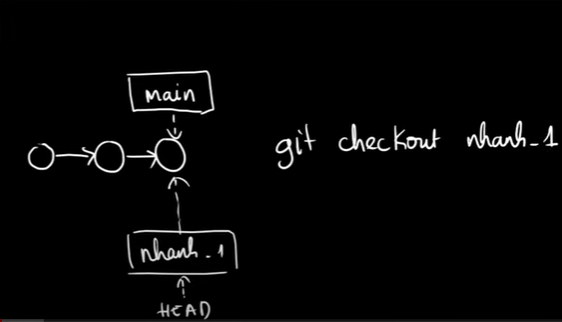 main
git checkout nhanh_1
nhanh_1
HEAD